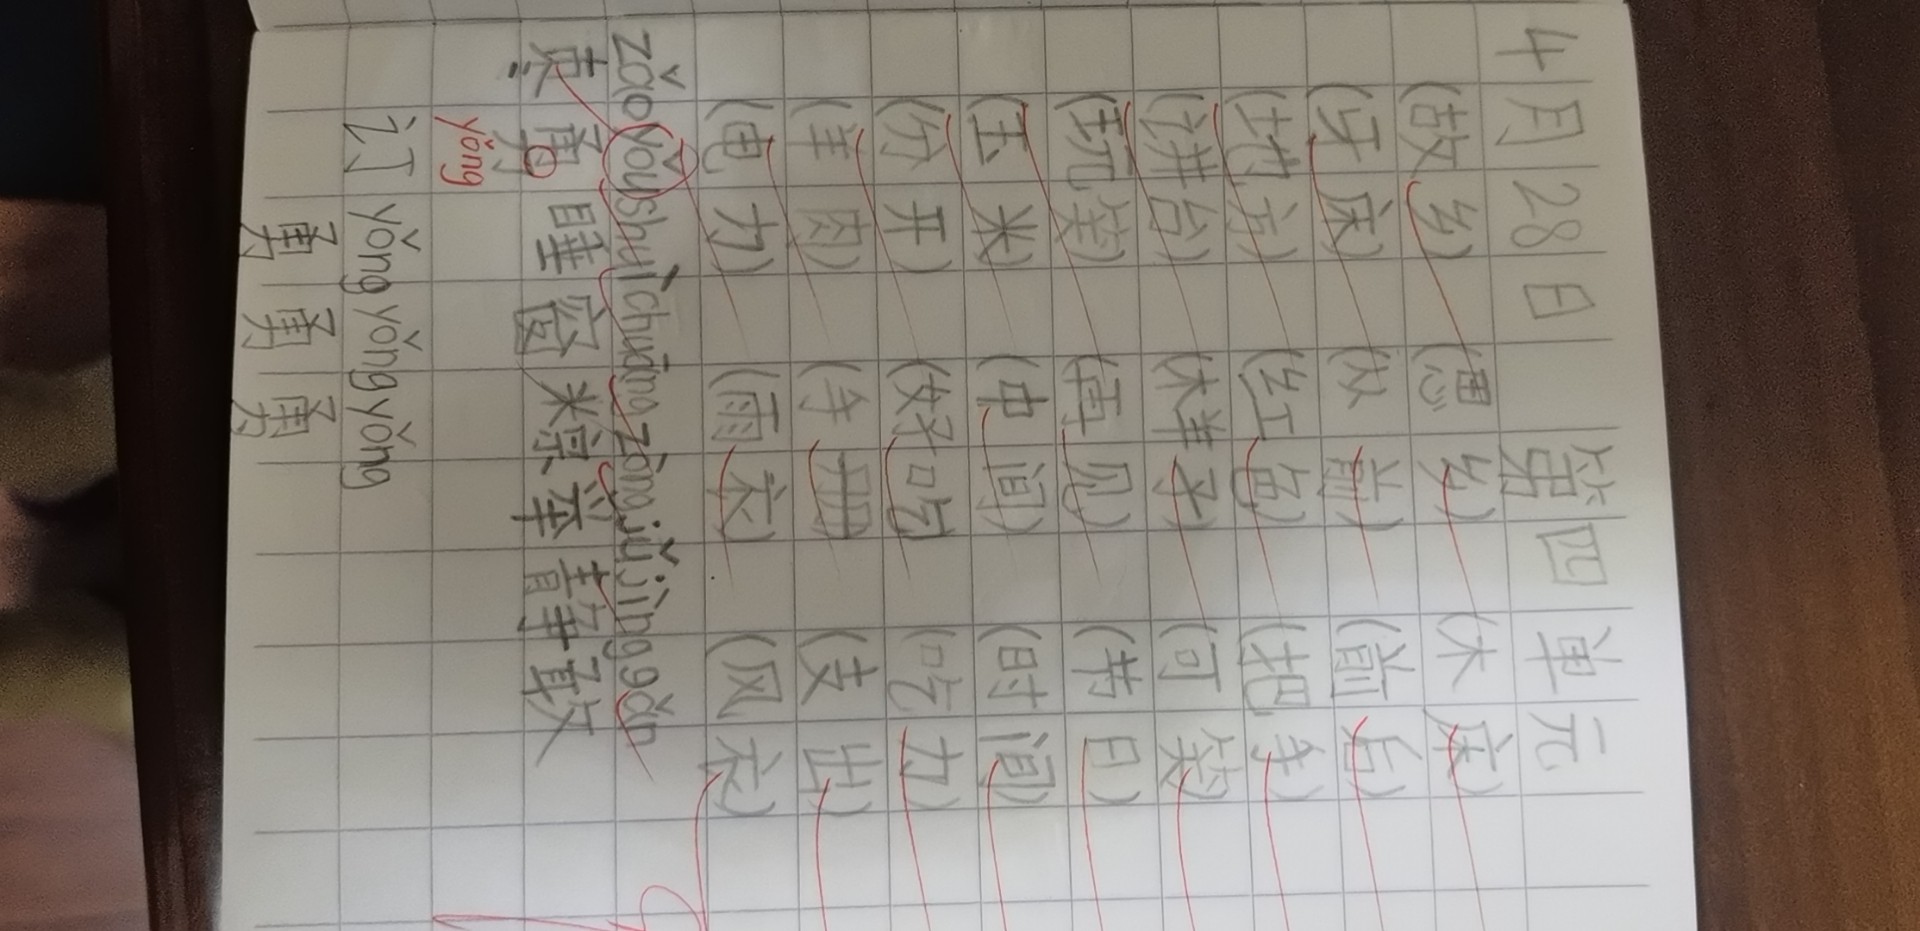 4月28日 第四单元
(故乡) (思乡) (木床)
(牙床) (从前) (前后)
(地方) (红色) (把手)
(讲台) (样子) (可笑)
(玩笑) (再见) (昔日)
(玉米) (中间) (时间)
(分开) (好吃) (吃力)
(羊肉) (牛册) (支出)
(电力) (雨衣) (风衣)
zǎo yǒu shuì chuāng zòng jǔ jìng gǎn
枣 勇 睡 窗 粽 举 静 敢
yǒng
订 yǒng yǒng yǒng
勇 勇 勇